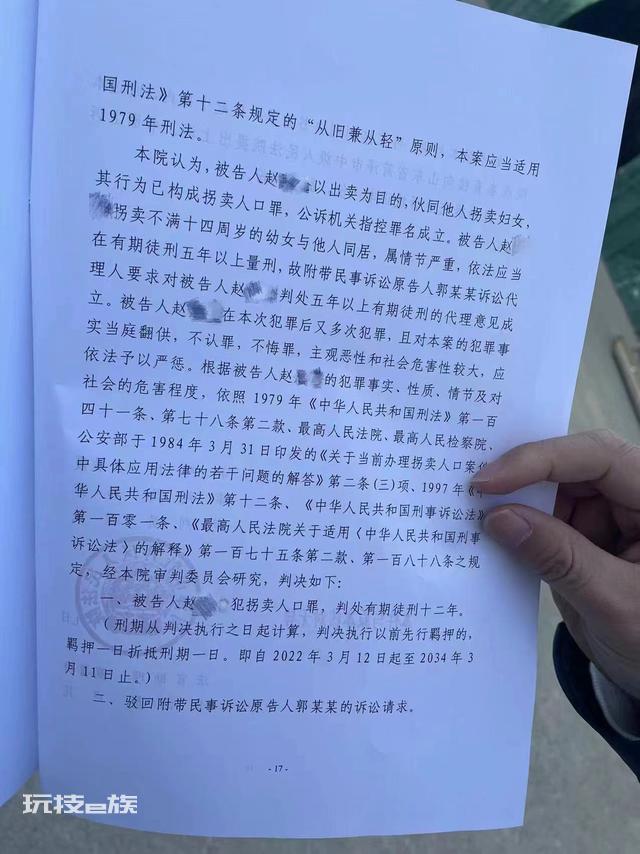 国刑法》第十二条规定的“从旧兼从轻”原则，本案应当适用
1979年刑法。
本院认为，被告人赵 以出卖为目的，伙同他人拐卖妇女，
其行为已构成拐卖人口罪，公诉机关指控罪名成立。被告人赵
拐卖不满十四周岁的幼女与他人同居，属情节严重，依法应当
在有期徒刑五年以上量刑，故附带民事诉讼原告人郭某某诉讼代
理人要求对被告人赵 判处五年以上有期徒刑的代理意见成
立。被告人赵 在本次犯罪后又多次犯罪，且对本案的犯罪事
实当庭翻供，不认罪，不悔罪，主观恶性和社会危害性较大，应
依法予以严惩。根据被告人赵 的犯罪事实、性质、情节及对
社会的危害程度，依照1979年《中华人民共和国刑法》第一百
四十一条、第七十八条第二款、最高人民法院、最高人民检察院、
公安部于1984年3月31日印发的《关于当前办理拐卖人口案
中具体应用法律的若干问题的解答》第二条(三)项、1997年《
华人民共和国刑法》第十二条、《中华人民共和国刑事诉讼法》
第一百零一条、《最高人民法院关于适用〈中华人民共和国刑事
诉讼法〉的解释》第一百七十五条第二款、第一百八十八条之规
定，经本院审判委员会研究，判决如下：
一、被告人赵 犯拐卖人口罪，判处有期徒刑十二年。
（刑期从判决执行之日起计算，判决执行以前先行羁押的，
羁押一日折抵刑期一日。即自2022年3月12日起至2034年3
月11日止。）
二、驳回附带民事诉讼原告人郭某某的诉讼请求。
-17-
玩技e族